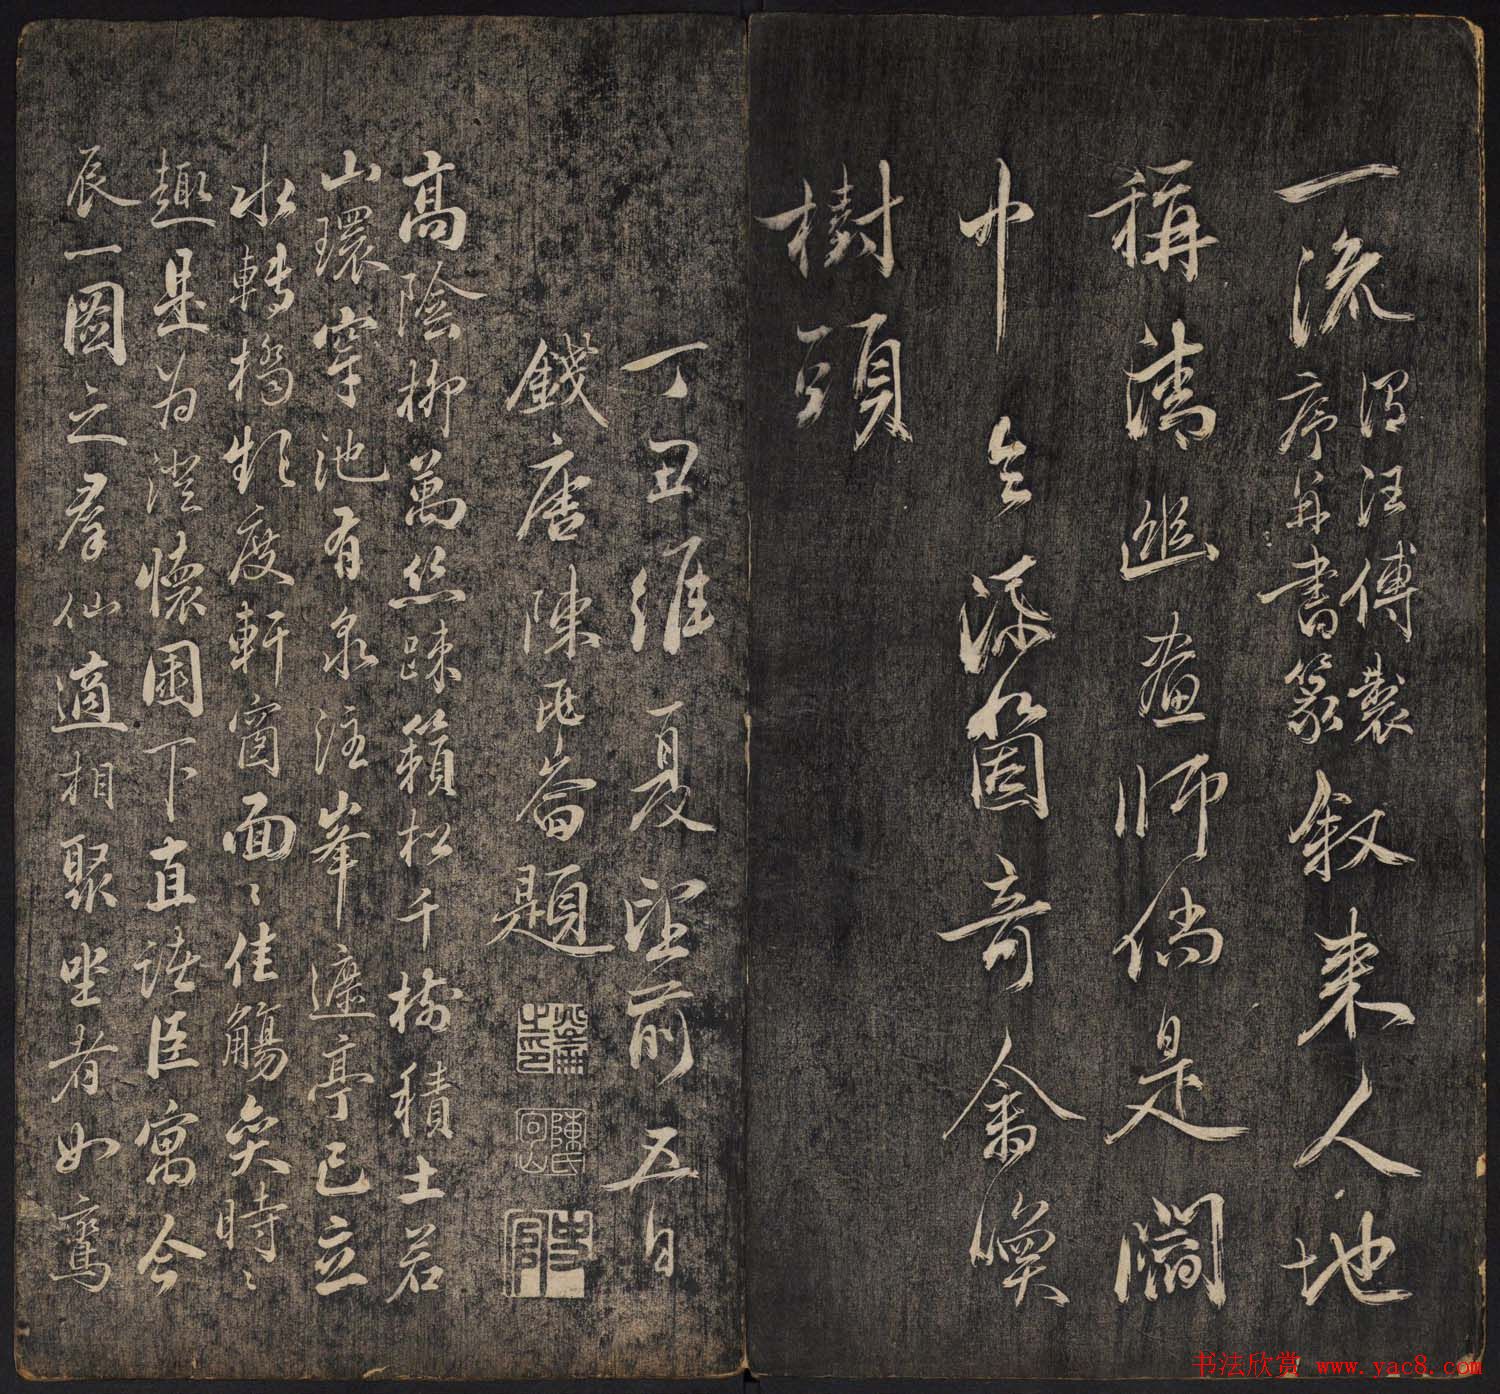 一流
汪傅製
序并書篆
敘來人地
稱清幽畫師倘是闊
中令添箇奇禽喚
樹頭
丁丑維夏望前五日
錢唐陳兆崙題
兆崙之印
陳氏句山
高陰柳萬絲疎籟松千樹積土若
山環穿池有泉注峯遮亭已立
水轉橋欹度軒窗面〻佳觴奕時〻
趣是為澄懷園下直諸臣寓今
辰一圖之群仙適相聚坐者如鸞
书法欣赏 www.yac8.com